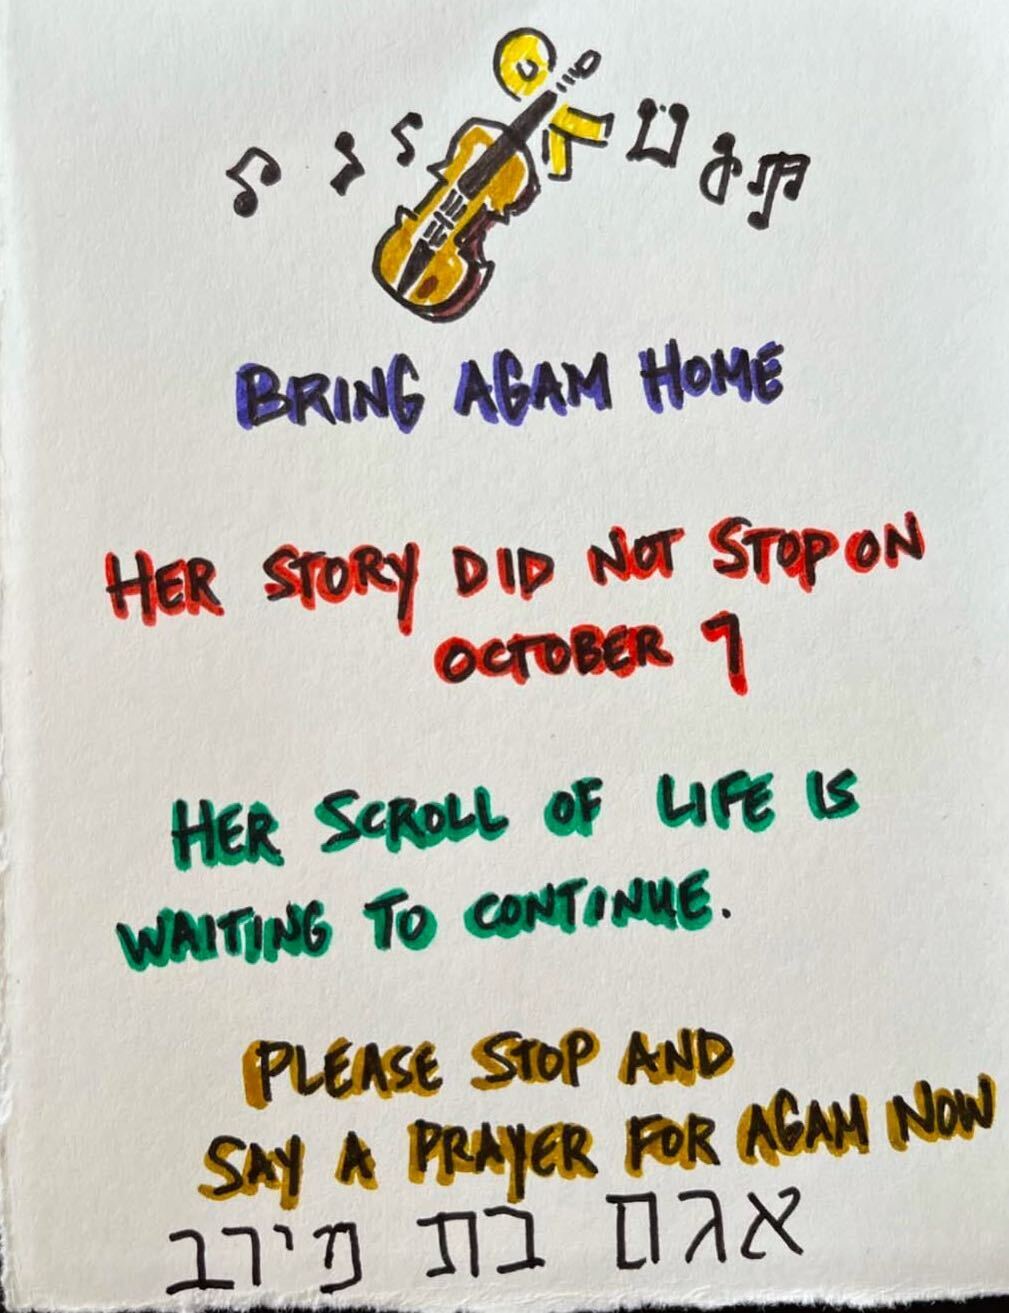 BRING AGAM HOME
HER STORY DID NOT STOP ON
OCTOBER 7
HER SCROLL OF LIFE IS
WAITING TO CONTINUE.
PLEASE STOP AND
SAY A PRAYER FOR AGAM NOW
אגם בת מירב